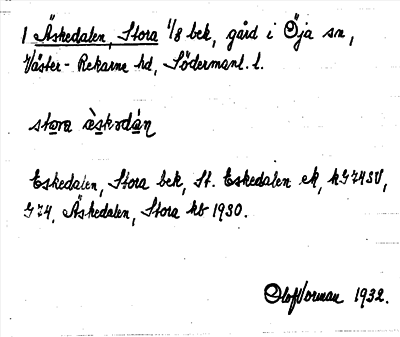 1 Äskedalen, Stora 1/8 bek, gård i Öja sn,
Väster-Rekarne hd, Södermanl. l.
stora ɛ̀skədàn
Eskedalen, Stora bek, St. Eskedalen ek, kG74SV,
G74, Äskedalen, Stora kb 1930.
Olof Vorman 1932.